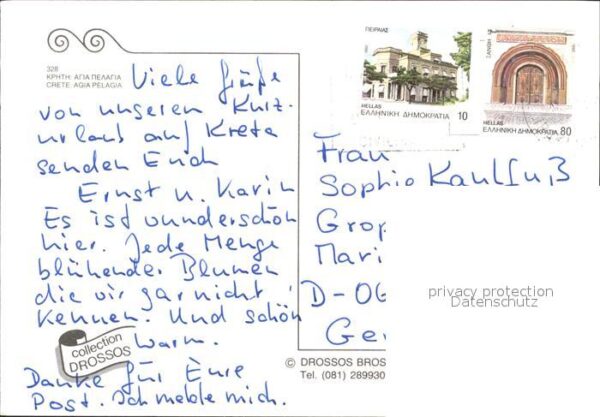 328
ΚΡΗΤΗ: ΑΓΙΑ ΠΕΛΑΓΙΑ
CRETE: AGIA PELAGIA
Viele Grüße
von unseren Kurz-
urlaub auf Kreta
senden Euch
Ernst u. Karin
Es ist wunderschön
hier. Jede Menge
blühender Blumen
die wir gar nicht
kennen. Und schön
warm.
Danke für Eure
Post. Ich melde mich.
collection
DROSSOS
ΠΕΙΡΑΙΑΣ
HELLAS
10
ΕΛΛΗΝΙΚΗ ΔΗΜΟΚΡΑΤΙΑ
ΞΑΝΘΗ
HELLAS
ΕΛΛΗΝΙΚΗ ΔΗΜΟΚΡΑΤΙΑ 80
Frau
Sophie Kaulfuß
Grop
Mari
D-06
Ge
privacy protection
Datenschutz
© DROSSOS BROS
Tel. (081) 289930